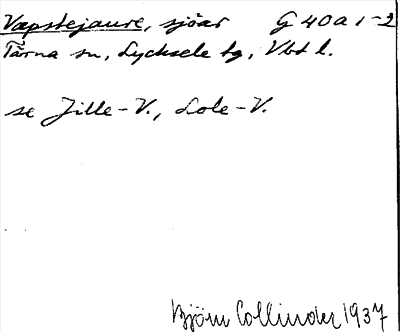 Vapstejaure, sjöar G 40 a 1-2
Tärna sn, Lycksele tg, Vbt l.
se Jille-V., Lole-V.
Björn Collinder 1937